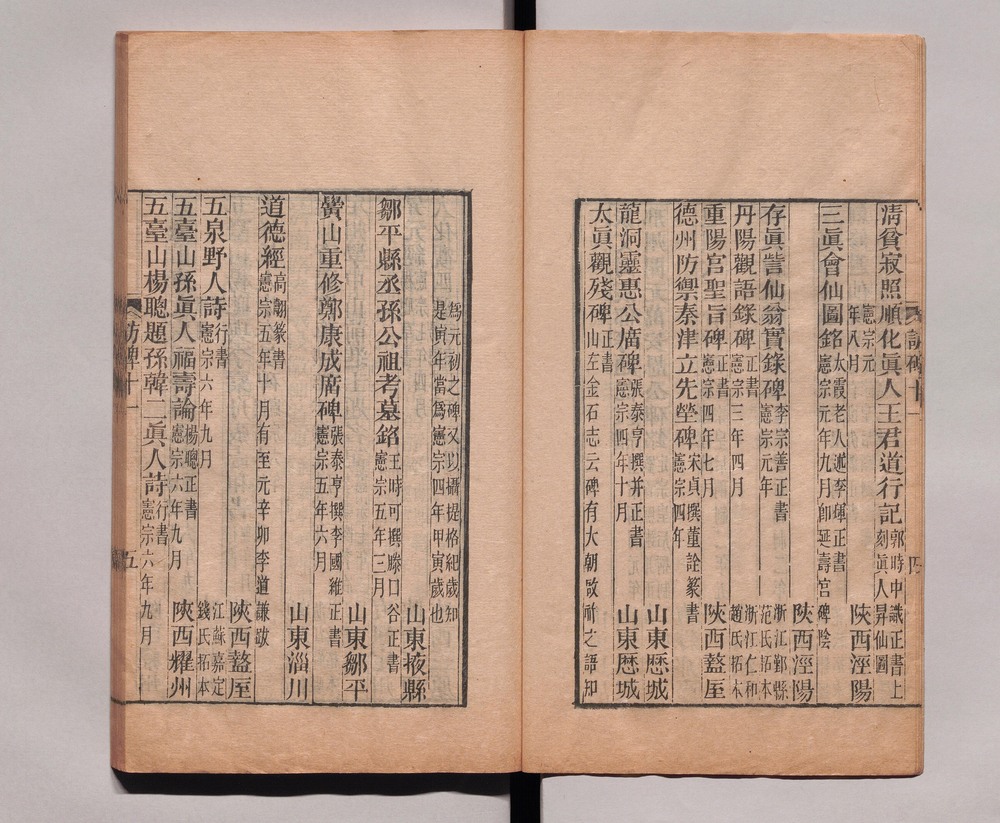 清貧寂照順化眞人王君道行記郭時中識正書上刻眞人昇仙圖
憲宗元年八月 陝西涇陽
三眞會仙圖銘太霞老人述李煇正書憲宗元年九月卽延壽宮碑陰
陝西涇陽
存眞訔仙翁實錄碑李宗善正書憲宗元年 浙江鄞縣范氏拓本
丹陽觀語錄碑正書憲宗三年四月 浙江仁和趙氏拓本
重陽宮聖旨碑正書憲宗四年七月 陝西盩厔
德州防禦秦津立先塋碑宋貞撰董詮篆書憲宗四年
山東歷城
龍洞靈惠公廟碑張泰亨撰并正書憲宗四年十月 山東歷城
太眞觀殘碑正書山左金石志云碑有大朝啟祚之語知
訪碑十一
四
爲元初之碑又以攝提格紀歲知是寅年當爲憲宗四年甲寅歲也
山東掖縣
鄒平縣丞孫公祖考墓銘王時可撰滕口谷正書憲宗五年三月
山東鄒平
黌山重修鄭康成廟碑張泰亨撰李國維正書憲宗五年六月
山東淄川
道德經高翿篆書憲宗五年十月有至元辛卯李道謙跋
陝西盩厔
五泉野人詩行書憲宗六年九月 江蘇嘉定錢氏拓本
五臺山孫眞人福壽論楊聰正書憲宗六年九月 陝西耀州
五臺山楊聰題孫韓二眞人詩行書憲宗六年九月
訪碑十一
五